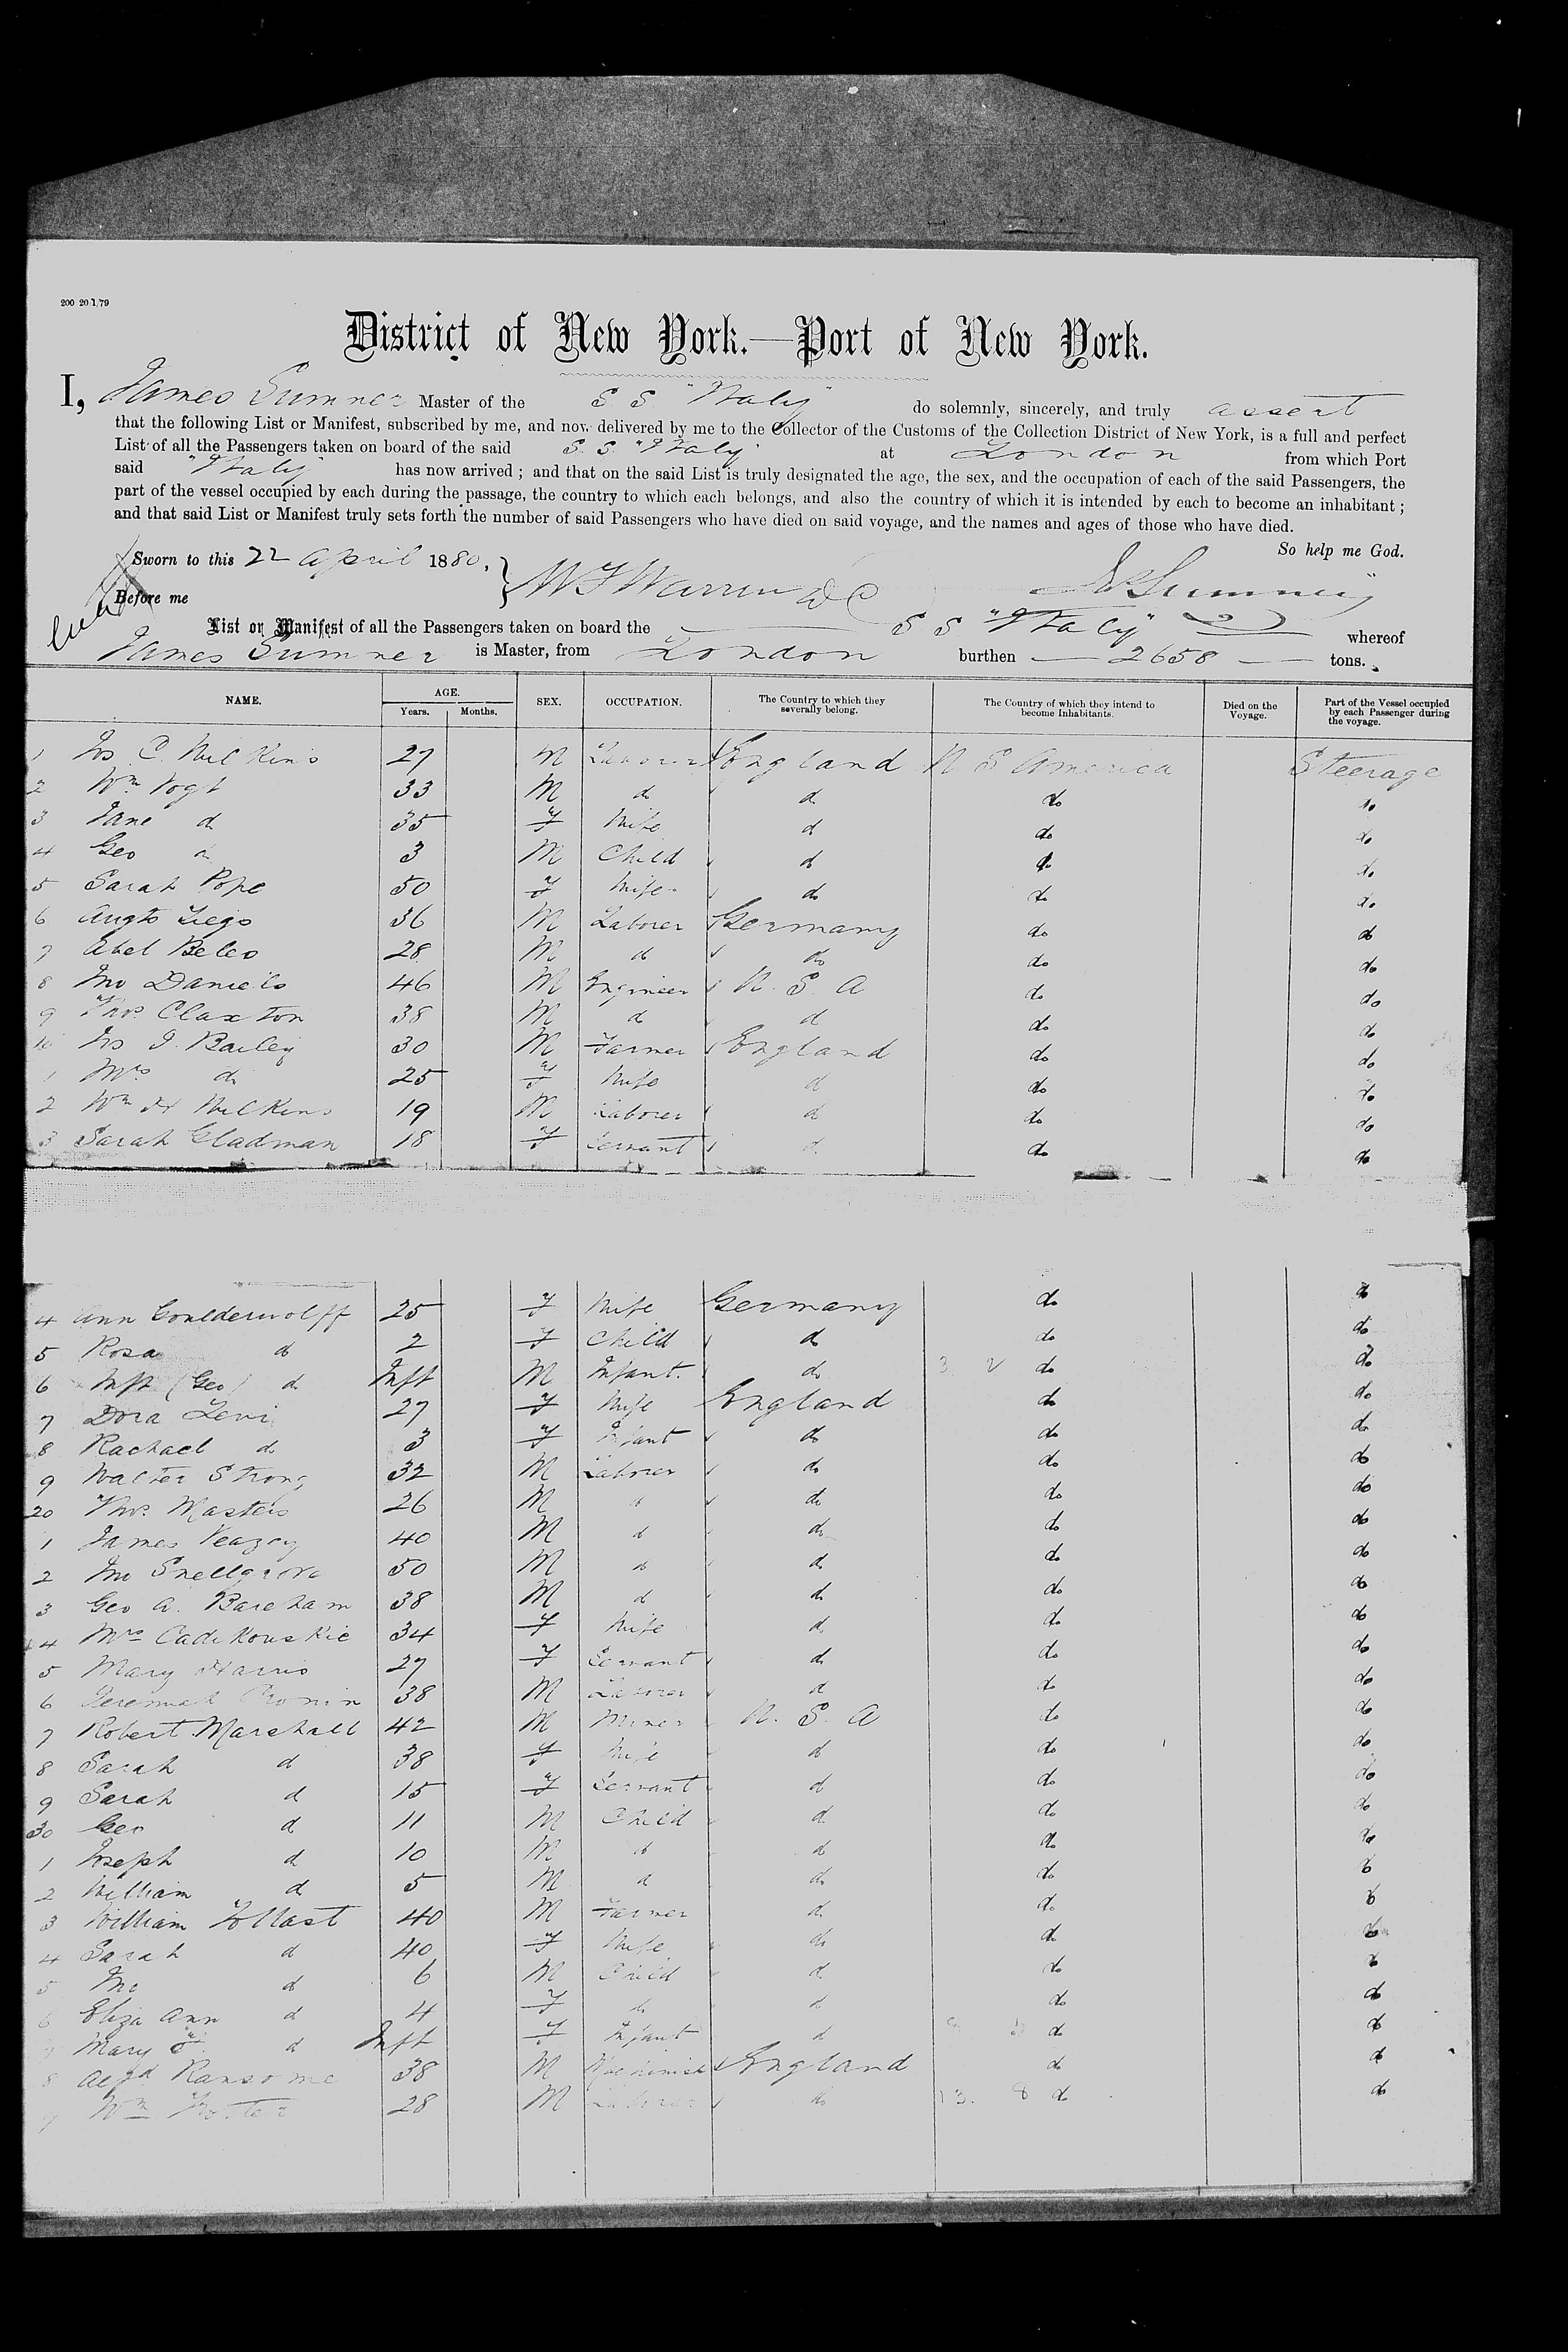 200 20/1/79
District of New York.—Port of New York.
I, James Sumner Master of the S S "Italy" do solemnly, sincerely, and truly assert
that the following List or Manifest, subscribed by me, and now delivered by me to the Collector of the Customs of the Collection District of New York, is a full and perfect
List of all the Passengers taken on board of the said S.S. "Italy" at London from which Port
said "Italy" has now arrived; and that on the said List is truly designated the age, the sex, and the occupation of each of the said Passengers, the
part of the vessel occupied by each during the passage, the country to which each belongs, and also the country of which it is intended by each to become an inhabitant;
and that said List or Manifest truly sets forth the number of said Passengers who have died on said voyage, and the names and ages of those who have died.
So help me God.
Sworn to this 22 April 1880,
Before me W F Warren DC Js Sumner
List or Manifest of all the Passengers taken on board the S S "Italy" whereof
James Sumner is Master, from London burthen 2658 tons.
NAME. AGE. Years. Months. SEX. OCCUPATION. The Country to which they severally belong. The Country of which they intend to become Inhabitants. Died on the Voyage. Part of the Vessel occupied by each Passenger during the voyage.
1 Jos C. Wilkins 27 M Laborer England U S America Steerage
2 Wm Vogt 33 M do do do do
3 Jane do 35 F Wife do do do
4 Geo do 3 M Child do do do
5 Sarah Pope 50 F Wife do do do
6 Augts 36 M Laborer Germany do do
7 Abel 28 M do do do do
8 Jno Daniels 46 M Engineer U. S. A do do
9 Thos Claxton 38 M do do do do
10 Jos J. Bailey 30 M Farmer England do do
1 Mrs do 25 F Wife do do do
2 Wm H Wilkins 19 M Laborer do do do
3 Sarah Gladman 18 F Servant do do do
4 Ann Goulderwolff 25 F Wife Germany do do
5 Rosa do 2 F Child do do do
6 Inft (Geo) do Inft M Infant. do do do
7 Dora Levi 27 F Wife England do do
8 Rachael do 3 F Infant do do do
9 Walter Strong 32 M Laborer do do do
20 Thos Masters 26 M do do do do
1 James Veazey 40 M do do do do
2 Jno Snellgrove 50 M do do do do
3 Geo A. Bareham 38 M do do do do
4 Mrs Cadikouskie 34 F Wife do do do
5 Mary Harris 27 F Servant do do do
6 Jeremiah Cronin 38 M Laborer do do do
7 Robert Marshall 42 M Miner U. S. A do do
8 Sarah do 38 F Wife do do do
9 Sarah do 15 F Servant do do do
30 Geo do 11 M Child do do do
1 Joseph do 10 M do do do do
2 William do 5 M do do do do
3 William Tollast 40 M Farmer do do do
4 Sarah do 40 F Wife do do do
5 Jno do 6 M Child do do do
6 Eliza Ann do 4 F do do do do
7 Mary F. do Inft F Infant do do do
8 Alfd Ransome 38 M Machinist England do do
9 Wm Foster 28 M Laborer do 13. 8 do do